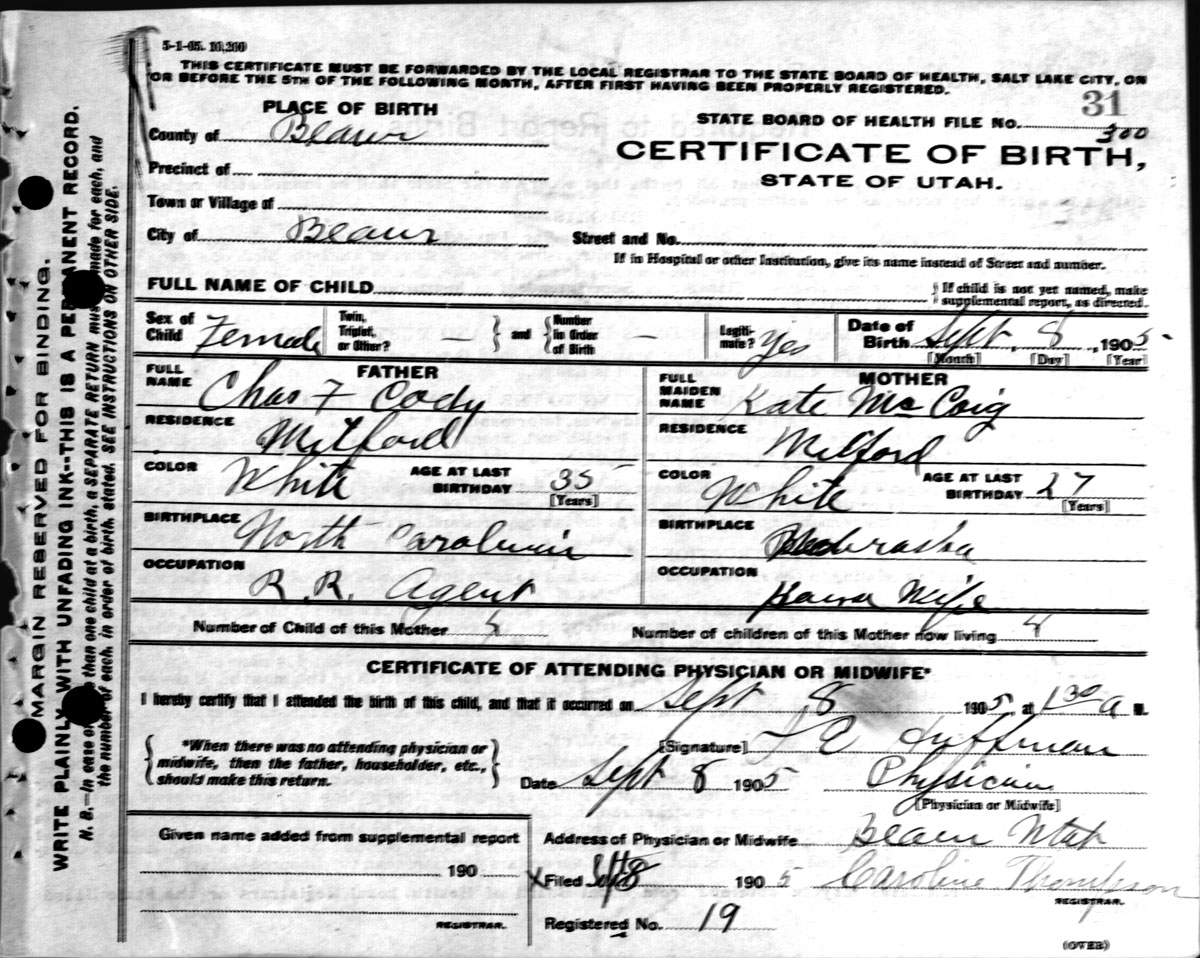 5-1-05. 10,200
THIS CERTIFICATE MUST BE FORWARDED BY THE LOCAL REGISTRAR TO THE STATE BOARD OF HEALTH, SALT LAKE CITY, ON
OR BEFORE THE 5TH OF THE FOLLOWING MONTH, AFTER FIRST HAVING BEEN PROPERLY REGISTERED.
31
PLACE OF BIRTH
STATE BOARD OF HEALTH FILE NO. 300
County of Beaver
CERTIFICATE OF BIRTH,
Precinct of
STATE OF UTAH.
Town or Village of
City of Beaver Street and No.
If in Hospital or other Institution, give its name instead of Street and number.
FULL NAME OF CHILD } If child is not yet named, make supplemental report, as directed.
Sex of Child Female Twin, Triplet, or Other? — } and { Number in Order of Birth — Legitimate? Yes Date of Birth Sept 8, 1905
[Month] [Day] [Year]
FATHER MOTHER
FULL NAME Chas F Cody FULL MAIDEN NAME Kate McCaig
RESIDENCE Milford RESIDENCE Milford
COLOR White AGE AT LAST BIRTHDAY 35 [Years] COLOR White AGE AT LAST BIRTHDAY 27 [Years]
BIRTHPLACE North Carolina BIRTHPLACE Nebraska
OCCUPATION R.R. Agent OCCUPATION House Wife
Number of Child of this Mother Number of children of this Mother now living
CERTIFICATE OF ATTENDING PHYSICIAN OR MIDWIFE*
I hereby certify that I attended the birth of this child, and that it occurred on Sept 8 1905, at 1 30 a M.
{ *When there was no attending physician or midwife, then the father, householder, etc., should make this return. }
[Signature]
Date Sept 8 1905 Physician
[Physician or Midwife]
Given name added from supplemental report
Address of Physician or Midwife Beaver Utah
190
X Filed Sept 8 1905 Caroline Thompson
REGISTRAR.
REGISTRAR.
Registered No. 19
(OVER)
MARGIN RESERVED FOR BINDING.
WRITE PLAINLY WITH UNFADING INK--THIS IS A PERMANENT RECORD.
N. B.—In case of than one child at a birth, a SEPARATE RETURN must made for each, and
the number of each, in order of birth, stated. SEE INSTRUCTIONS ON OTHER SIDE.